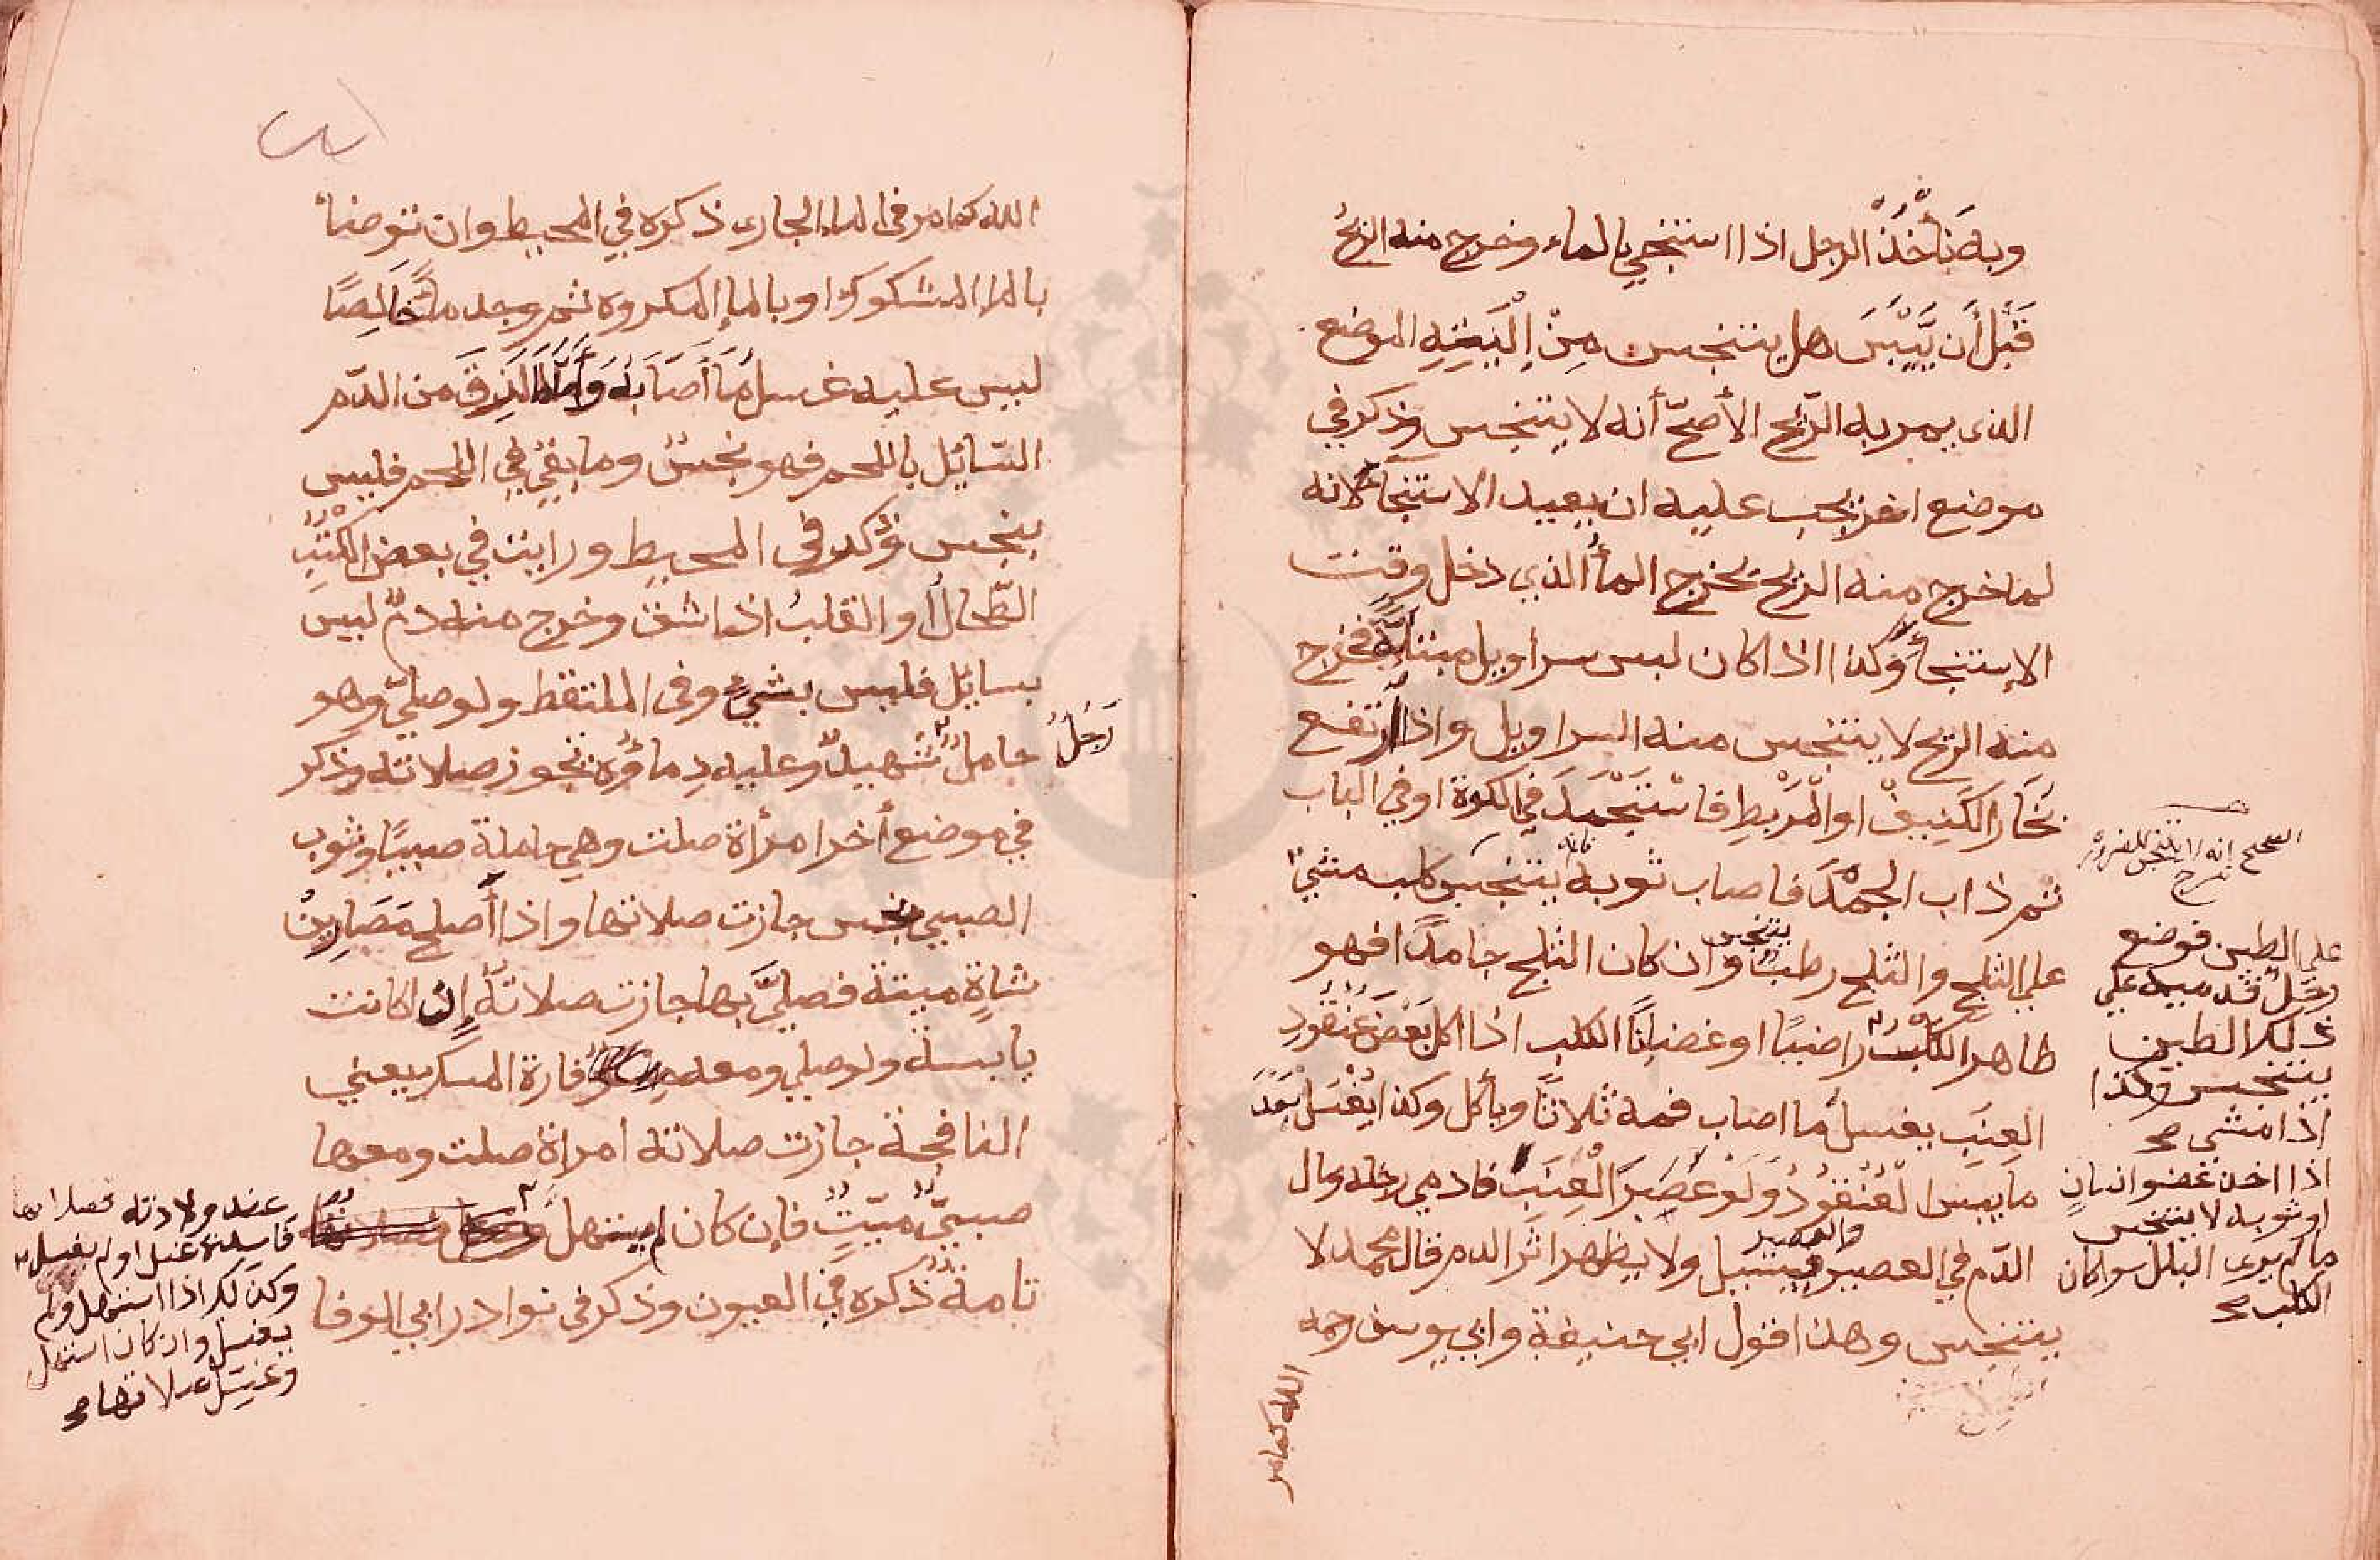 وبه نَأْخُذُ الرجل اذا استنجي بالماء وخرج منه الريحُ
قَبْلَ أَن يَّيْبَسَ هل يتنجس مِنْ إِلْيَتِهِ الموضع
الذى يمر به الرّيح الأصحّ أنه لا يتنجس وذكر في
موضع اخر يجب عليه ان يعيد الاستنجاء لانه
لما خرج منه الريح يخرج الماأ الذي دخل وقت
الاستنجاء وكذا اذا كان لبس سراويل مبتلة فخرج
منه الريح لا يتنجس منه السراويل واذا ارتفع
بُخَار الكَنِيفْ او الْمَرْبِطِ فاسْتَجْمَدَ في الكوة او في الباب
ثم ذاب الجمْدَ فاصاب ثوبه فانه يتنجس كلب مشيٰ
علي الثلج والثلج رطبٌ يتنجس وان كان الثلج جامدًا فهو
طاهر الكلب راضيًا او غضبانًا الكلب اذا اكل بَعْضَ عُنْقُودِ
العِنَبِ يغسل ما اصاب فمه ثلاثًا ويأكل وكذا يُغْسَلُ بَعْدَ
مَا يبس الْعُنْقُودُ وَلَوْ عَصَرَ الْعِنَبَ فادمي رجله وسال
الدّم في العصير والعصير يسيل ولا يظهر اثر الدم قال محمد لا
يتنجس وهذا قول ابي حنيفة وابي يوسف رحمه
الله كما مر
الصحيح انه لا يتنجس للضرورة
شرح
علي الطين فوضع
رجلٌ قدميه علي
ذلك الطين
يتنجس وكذا
اذا مشي صح
اذا اخذ عضو انسانٍ
او ثوبه لا يتنجس
ما لم يرى البلل سوا كان
الكلب صح
الله كما مر في الماء الجارى ذكره في المحيط وان توضأ
بالماء المشكوك او بالماء المكروه ثم وجد ماءً خَالِصًا
ليس عليه غسل مَا أَصَابَهُ وَأَمَّا مَا لَزِقَ من الدّم
السّائل باللحم فهو نجسٌ وما بقيَ في اللّحم فليس
بنجس ذُكر في المحيط ورايت في بعض الكتبِ
الطّحالُ او القلبُ اذا شق وخرج منه دمٌ ليس
بسائل فليس بشيءٍ وفى الملتقط ولو صليّ وهو
رَجُلٌ
حاملٌ شهيدًا وعليه دِماؤُه تجوز صلاته وذكر
في موضع أخر امرأة صلت وهي حاملة صبيًا وثوب
الصبيى نجس جازت صلاتها واذا أصلح مَصَارِينُ
شاةٍ ميتة فصليَّ بها جازت صلاتهُ إن كانت
يابسة ولو صلي ومعه فارة المسك يعني
النافجة جازت صلاته امراة صلت ومعها
صبيىٌّ ميّتٌ فإن كان لم يستهل
تامةٌ ذكره في العيون وذكر في نوادر ابي الوفا
عند ولادته فصلاتها
فاسدة غسل او لم يغسل
وكذلك اذا استهل ولم
يغسل وان كان استهل
وغسِّل صلاتها صح